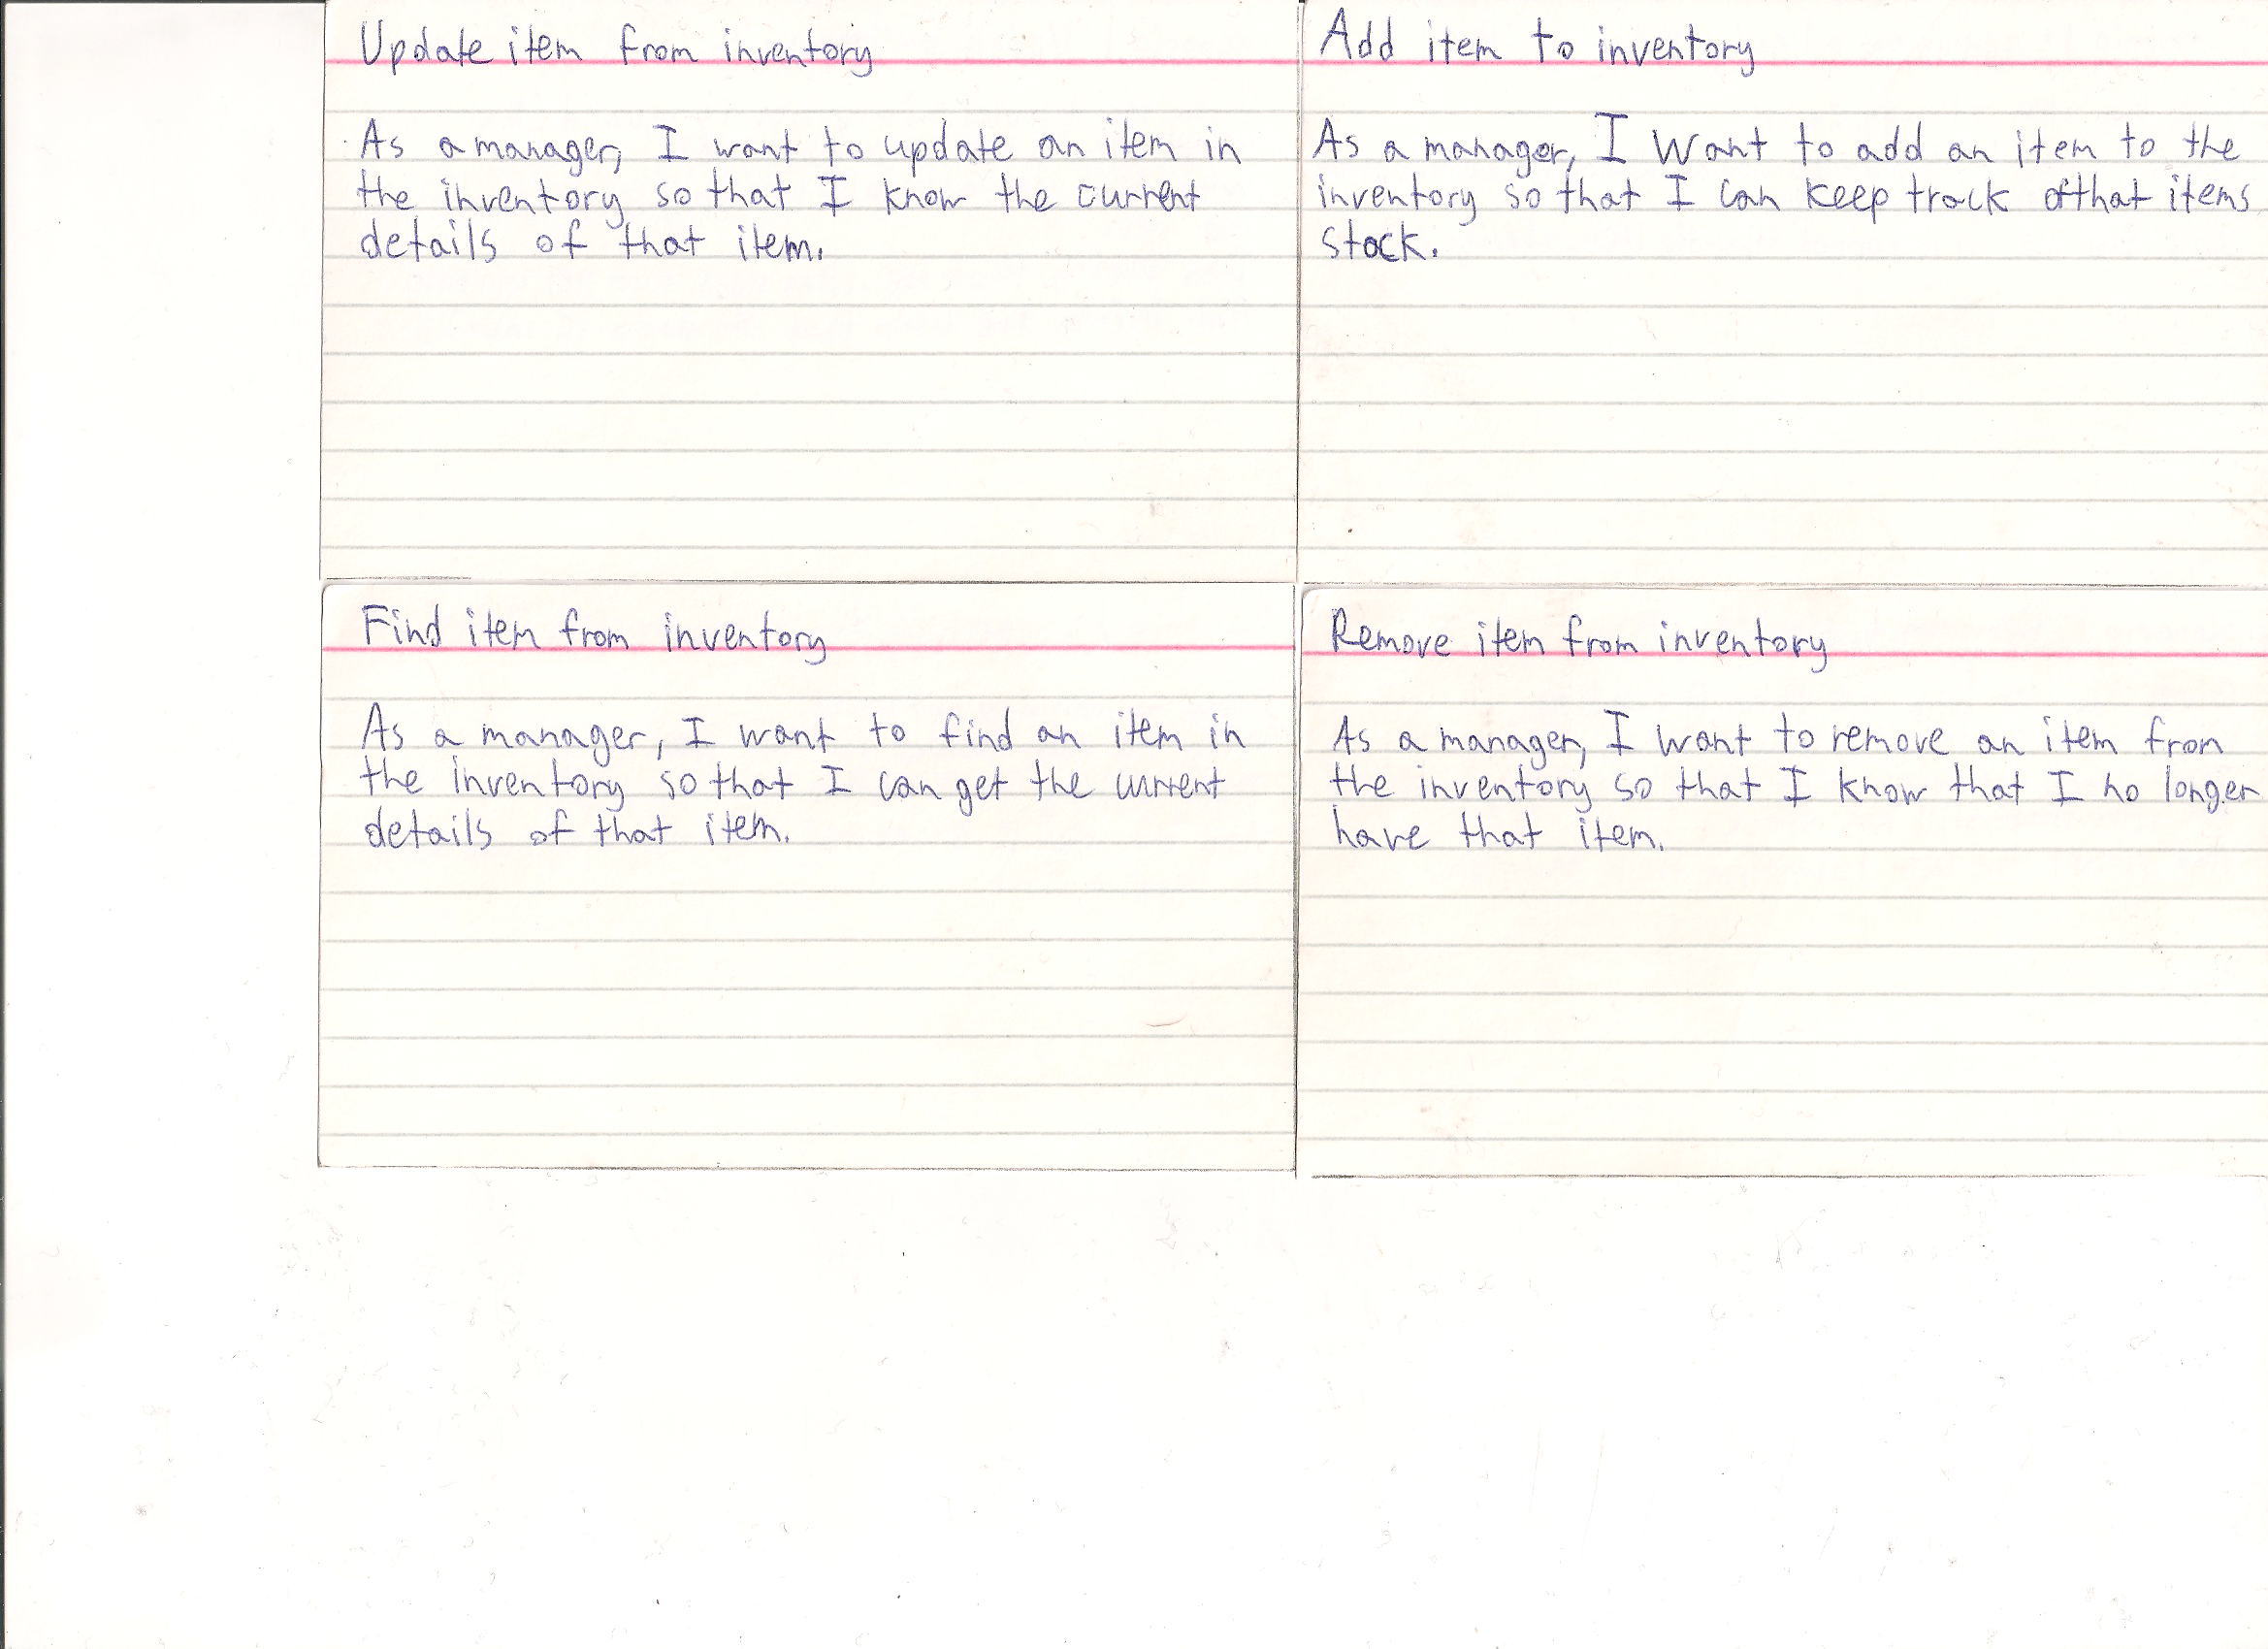 Update item from inventory
As a manager, I want to update an item in
the inventory so that I know the current
details of that item.
Add item to inventory
As a manager, I want to add an item to the
inventory so that I can keep track of that items
stock.
Find item from inventory
As a manager, I want to find an item in
the inventory so that I can get the current
details of that item.
Remove item from inventory
As a manager, I want to remove an item from
the inventory so that I know that I no longer
have that item.